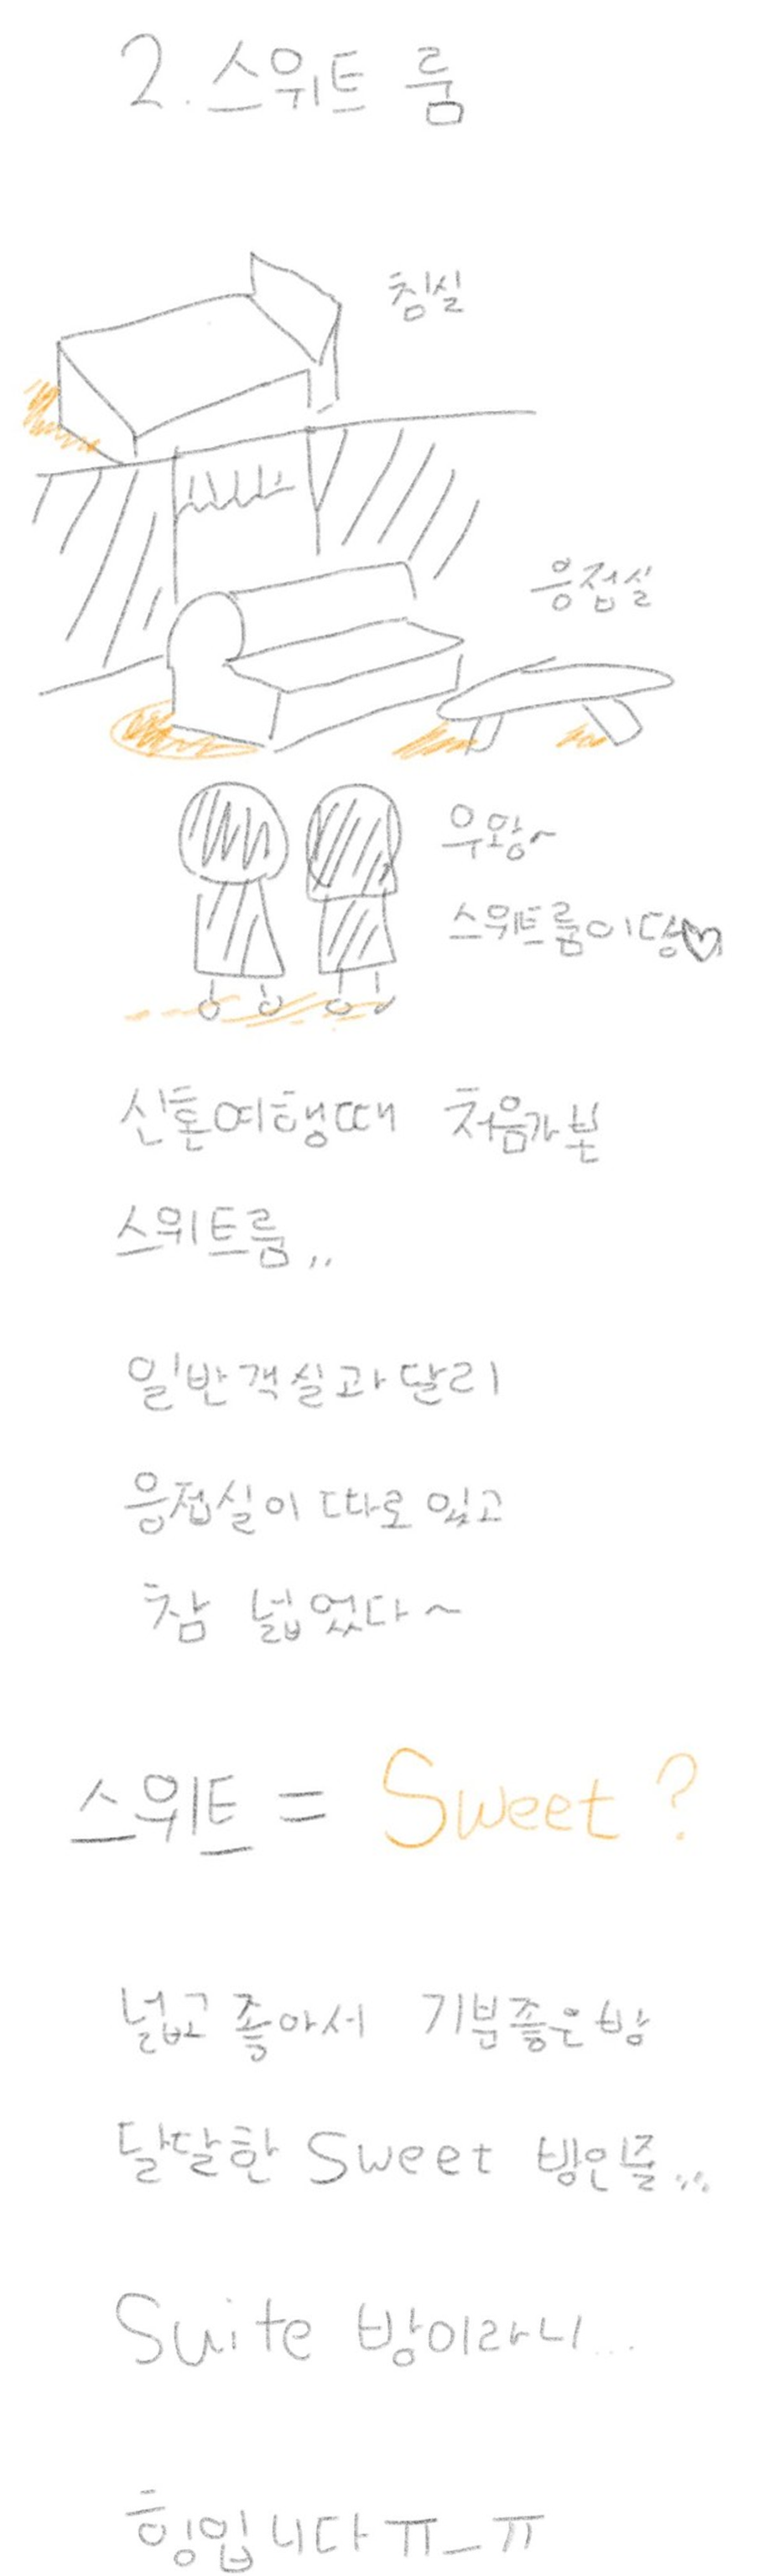 2. 스위트 룸
침실
응접실
우왕~
스위트룸이당♡
신혼여행때 처음가본
스위트룸,,
일반객실과 달리
응접실이 따로 있고
참 넓었다~
스위트 = Sweet ?
넓고 좋아서 기분좋은 방
달달한 Sweet 방인줄...
Suite 방이라니...
힝입니다 ㅠ_ㅠ